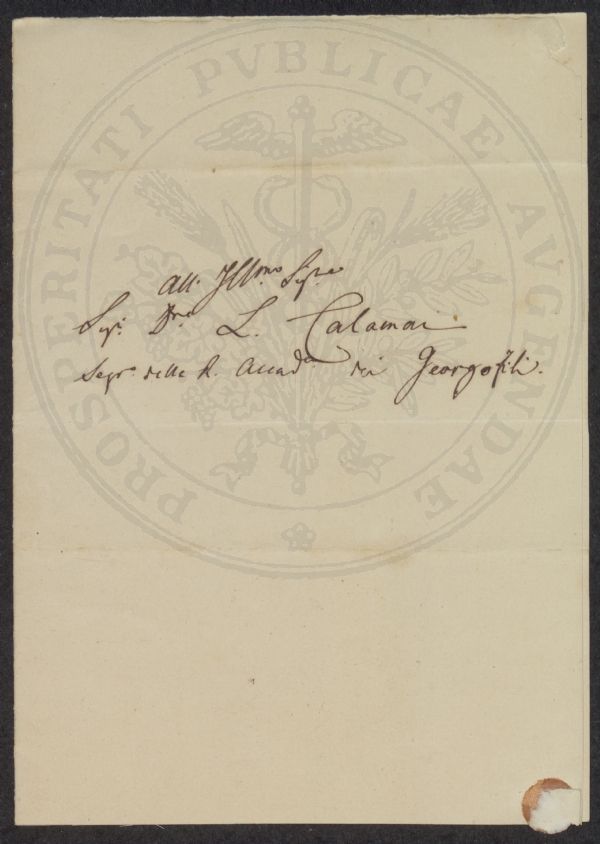 PROSPERITATI PVBLICAE AVGENDAE
All. Illmo. Sigre
Sigr. Dre. L. Calamai
Segro. delle R. Accada. dei Georgofili.